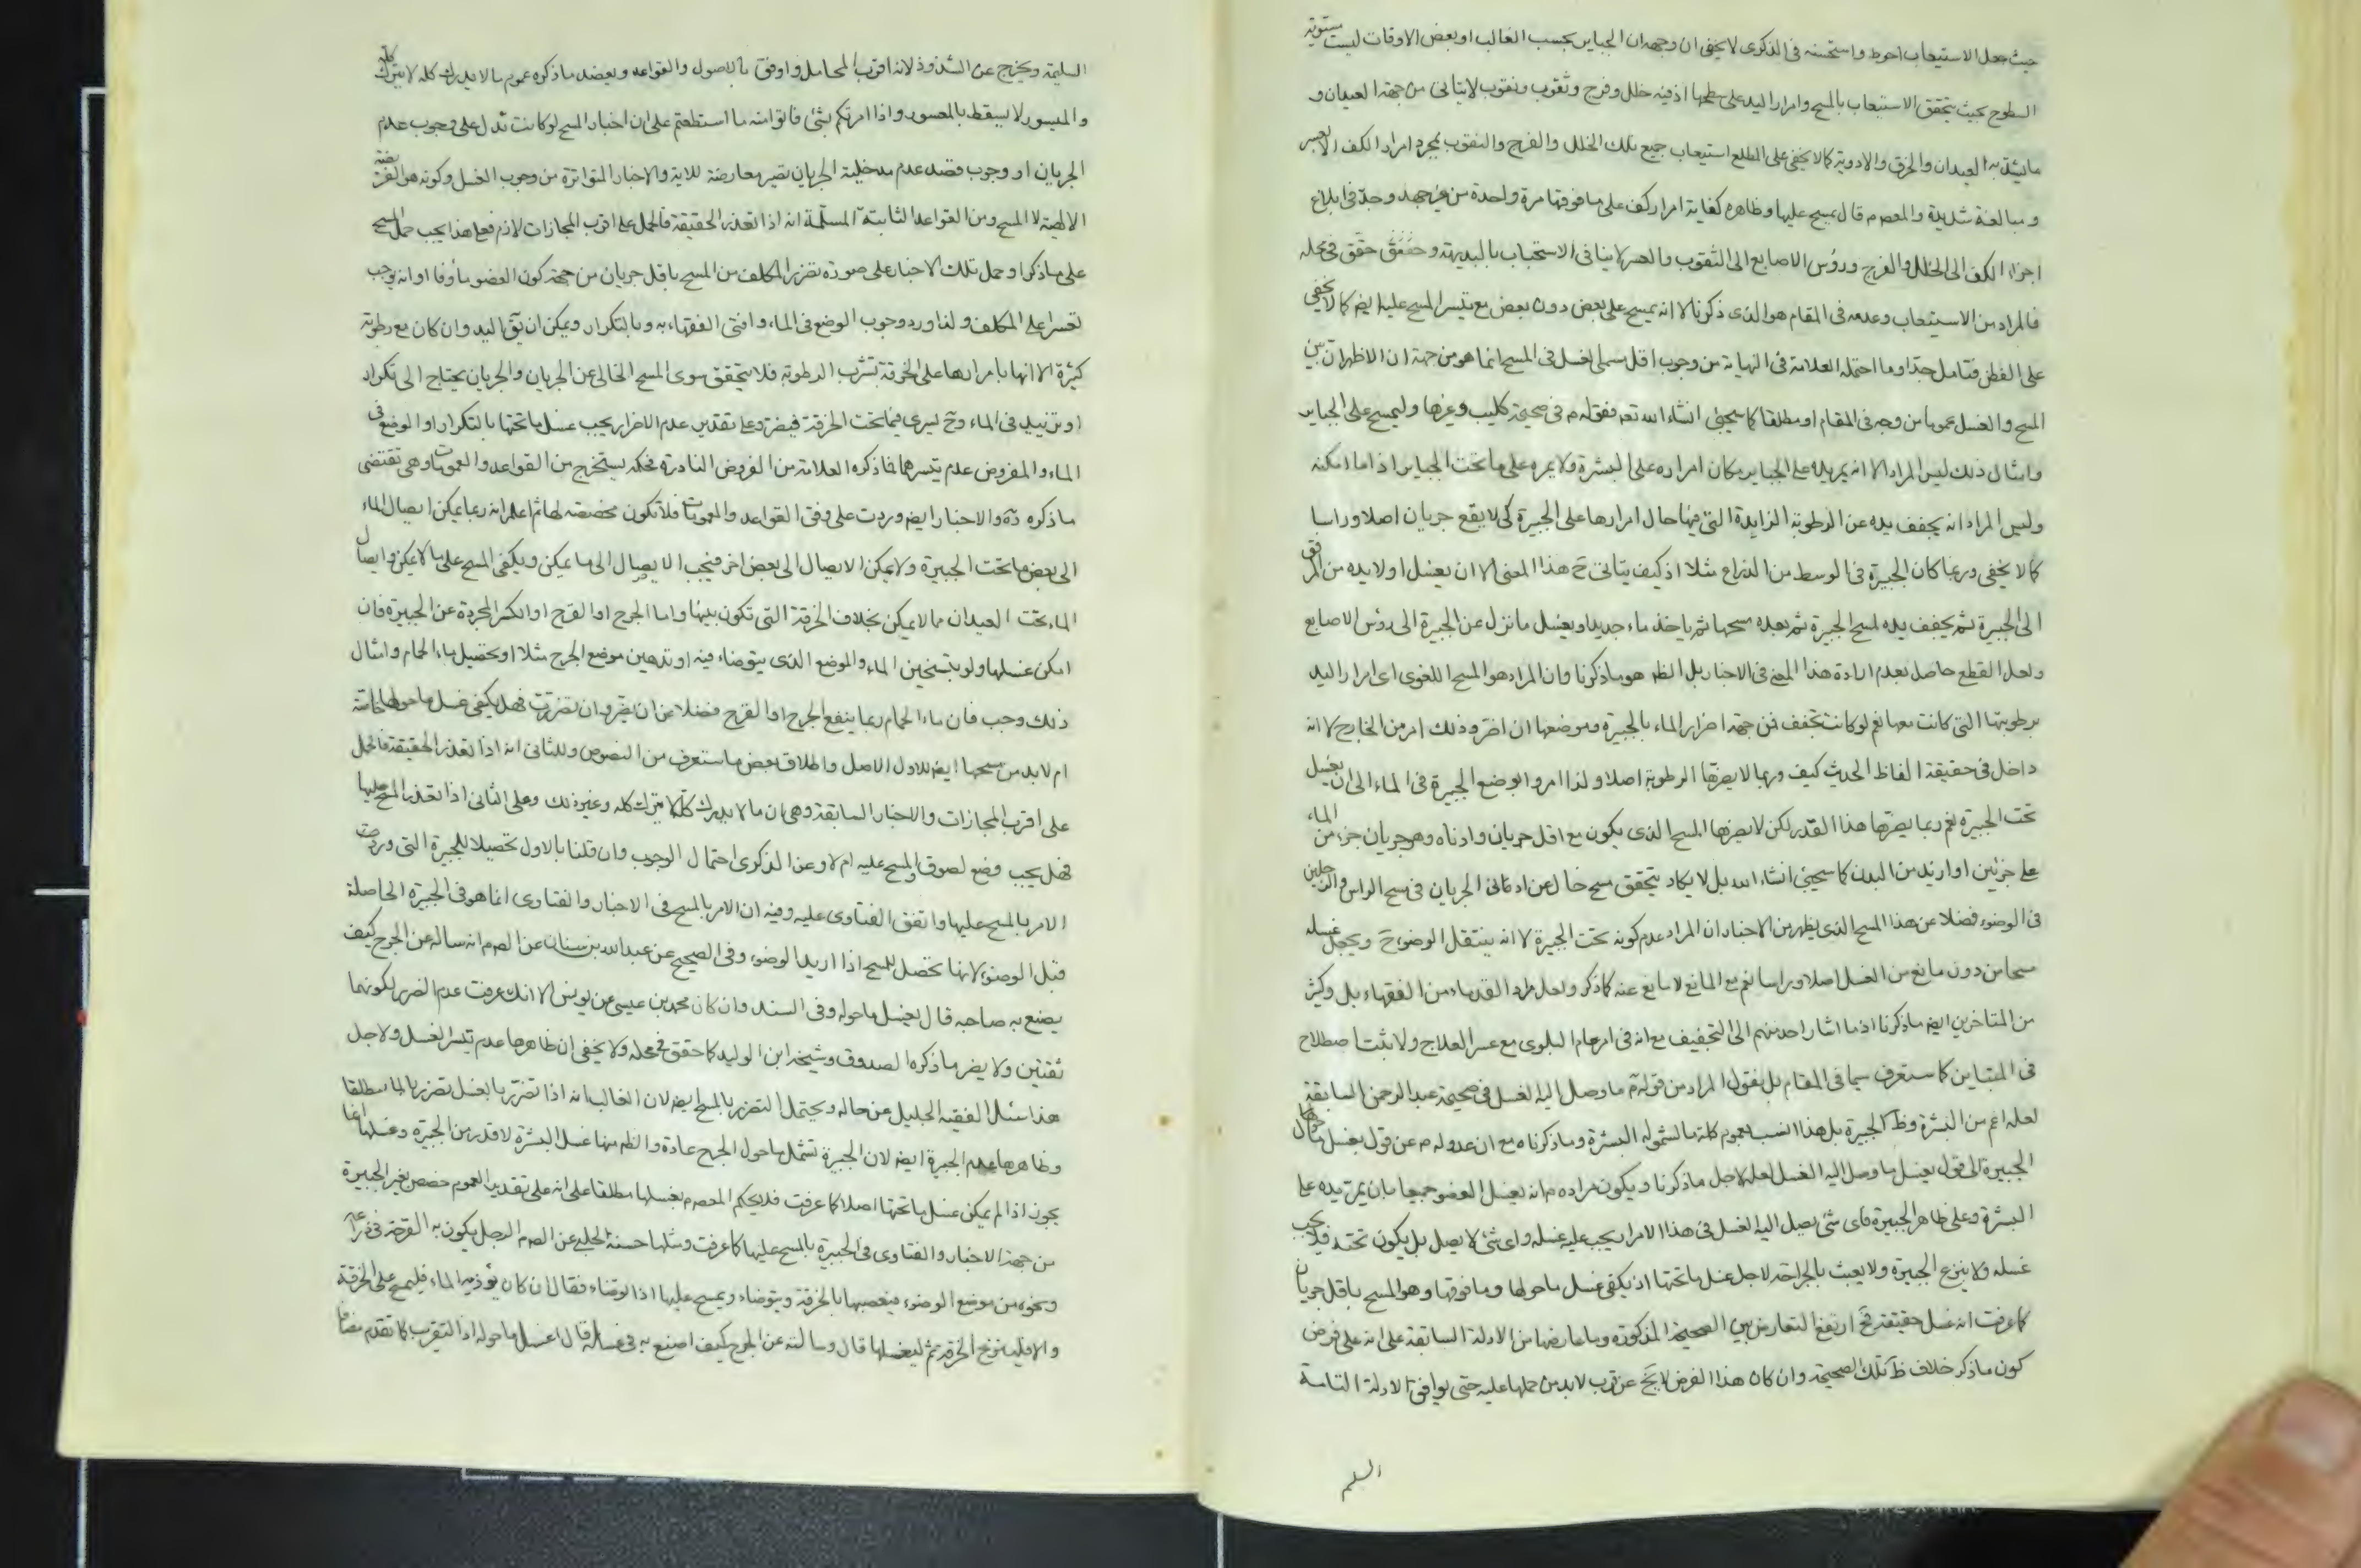 حيث جعل الاستيعاب احوط واستحسنه في الذكرى لا يخفى ان وجهه ان الجباير بحسب الغالب او بعض الاوقات ليست مستوية
السطوح بحيث يتحقق الاستيعاب بالمسح وامرار اليد على سطحها اذ فيه خلل وفرج وثقوب ونقوب لا يتاتى من جهة العيدان و
ما يشد به العيدان والخرق والادوية كما لا يخفى على المطلع استيعاب جميع تلك الخلل والفرج والنقوب بمجرد امرار الكف الا بعسر
ومبالغة شديدة والمعصوم قال يمسح عليها وظاهره كفاية امرار كف على ما فوقها مرة واحدة من غير جهد وجد في ابلاغ
اجزاء الكف الى الخلل والفرج ورؤس الاصابع الى الثقوب والعسر لا ينافي الاستحباب بالبديهة وحقق في محله
فالمراد من الاستيعاب وعدمه في المقام هو الذي ذكرنا لا انه يمسح على بعض دون بعض مع تيسر المسح عليه ايضا كما لا يخفى
على الفطن فتامل جدا وما احتمله العلامة في النهاية من وجوب اقل مسمى الغسل في المسح انما هو من جهة ان الاظهر ان بين
المسح والغسل عموما من وجه في المقام او مطلقا كما سيجئ انشاء الله تعه فقوله م في صحيحة كليب وغيرها وليمسح على الجباير
وامثال ذلك ليس المراد الا انه يمر يده على الجباير مكان امراره على البشرة ولا يمره على ما تحت الجباير اذا ما امكنه
وليس المراد انه يجفف يده عن الرطوبة الزايدة التي فيها حال امرارها على الجبيرة كي لا يقع جريان اصلا وراسا
كما لا يخفى وربما كان الجبيرة في الوسط من الذراع مثلا اذ كيف يتاتى ح هذا المعنى الا ان يغسل اولا يده من المرفق
الى الجبيرة ثم يجفف يده لمسح الجبيرة ثم بعده مسحها ثم ياخذ ماء جديدا ويغسل ما نزل عن الجبيرة الى رؤس الاصابع
ولعل القطع حاصل بعدم ارادة هذا المعنى في الاخبار بل الظ هو ما ذكرنا وان المراد هو المسح اللغوي اي امرار اليد
برطوبتها التي كانت معها نعم لو كانت تجفف فمن جهة اضرار الماء بالجبيرة وموضعها ان اضر وذلك امر من الخارج لا انه
داخل في حقيقة الفاظ الحديث كيف وربما لا يضرها الرطوبة اصلا ولذا امروا بوضع الجبيرة في الماء الى ان يغسل
تحت الجبيرة نعم ربما يضرها هذا القدر لكن لا يضرها المسح الذي يكون مع اقل جريان وادناه وهو جريان جزء من الماء
على جزئين او ازيد من البدن كما سيجئ انشاء الله بل لا يكاد يتحقق مسح خال عن ادنى الجريان في مسح الراس والرجلين
في الوضوء فضلا عن هذا المسح الذي يظهر من الاخبار ان المراد عدم كونه تحت الجبيرة لا انه ينتقل الوضوء ح ويجعل غسله
مسحا من دون مانع من الغسل اصلا وراسا نعم مع المانع لا مانع عنه كما ذكر ولعل مراد القدماء من الفقهاء بل وكثير
من المتاخرين ايضا ما ذكرنا اذ ما اشار احد منهم الى التجفيف مع انه في امر عام البلوى مع عسر العلاج ولا يثبت اصطلاح
في المتباين كما ستعرف سيما في المقام بل نقول المراد من قوله م ما وصل اليه الغسل في صحيحة عبد الرحمن السابقة
لعله اعم من البشرة وظ الجبيرة بل هذا انسب بعموم كلمة ما لشموله البشرة وما ذكرناه مع ان عدوله م عن قول يغسل ما حوال
الجبيرة الى قول يغسل ما وصل اليه الغسل لعله لاجل ما ذكرنا ويكون مراده م انه يغسل العضو جميعا بان يمر يده على
البشرة وعلى ظاهر الجبيرة فاي شئ يصل اليه الغسل في هذا الامرار يجب عليه غسله واي شئ لا يصل بل يكون تحته فلا يجب
غسله ولا ينزع الجبيرة ولا يعبث بالجراحة لاجل غسل ما تحتها اذ يكفي غسل ما حولها وما فوقها وهو المسح باقل جريان
كما عرفت انه غسل حقيقة فح ارتفع التعارض بين الصحيحة المذكورة وما عارضها من الادلة السابقة على انه على فرض
كون ما ذكر خلاف ظ تلك الصحيحة وان كان هذا الفرض لا يخ عن قرب لابد من حملها عليه حتى يوافق الادلة التامة
السلم
السليمة ويخرج عن الشذوذ لانه اقرب المحامل واوفق بالاصول والقواعد ويعضد ما ذكره عموم ما لا يدرك كله لا يترك كله
والميسور لا يسقط بالمعسور واذا امرتكم بشئ فاتوا منه ما استطعتم على ان اخبار المسح لو كانت تدل على وجوب عدم
الجريان او وجوب قصد عدم مدخلية الجريان تصير معارضة للاية والاخبار المتواترة من وجوب الغسل وكونه هو الفريضة
الالهية لا المسح ومن القواعد الثابتة المسلمة انه اذا تعذر الحقيقة فالحمل على اقرب المجازات لازم فعلى هذا يجب حمل المسح
على ما ذكر او حمل تلك الاخبار على صورة تضرر المكلف من المسح باقل جريان من جهة كون العضو ماؤفا او انه يوجب
تعسرا على المكلف ولذا ورد وجوب الوضع في الماء وافتى الفقهاء به وبالتكرار ويمكن ان يق اليد وان كان مع رطوبة
كثيرة الا انها بامرارها على الخرقة تشرب الرطوبة فلا يتحقق سوى المسح الخالي عن الجريان والجريان يحتاج الى تكرار
او تنزيله في الماء وح يسري فيما تحت الخرقة فيضره وعلى تقدير عدم الاضرار يجب غسل ما تحتها بالتكرار او الوضع في
الماء والمفروض عدم تيسرهما فما ذكره العلامة من الفروض النادرة فحكمه يستخرج من القواعد والعمومات وهي تقتضي
ما ذكره ره والاخبار ايضا وردت على وفق القواعد والعمومات فلا تكون مخصصة لها ثم اعلم انه ربما يمكن ايصال الماء
الى بعض ما تحت الجبيرة ولا يمكن الايصال الى بعض اخر فيجب الايصال الى ما يمكن ويكفي المسح على ما لا يمكن وايصال
الماء تحت العيدان مما لا يمكن بخلاف الخرقة التي تكون بينها واما الجرح او القرح او الكسر المجردة عن الجبيرة فان
امكن غسلها ولو بتسخين الماء والموضع الذي يتوضاء فيه او تدهين موضع الجرح مثلا او تحصيل ماء الحمام وامثال
ذلك وجب فان ماء الحمام ربما ينفع الجرح او القرح فضلا عن ان يضر وان تضررت فهل يكفي غسل ما حولها خاصة
ام لابد من مسحها ايضا للاول الاصل واطلاق بعض ما ستعرف من النصوص وللثاني انه اذا تعذر الحقيقة فالحمل
على اقرب المجازات والاخبار السابقة وهي ان ما لا يدرك كله لا يترك كله وغير ذلك وعلى الثاني اذا تعذر المسح عليها
فهل يجب وضع لصوق والمسح عليه ام لا وعن الذكرى احتمال الوجوب وان قلنا بالاول تحصيلا للجبيرة التي وردت
الامر بالمسح عليها واتفق الفتاوى عليه وفيه ان الامر بالمسح في الاخبار والفتاوى انما هو في الجبيرة الحاصلة
قبل الوضوء لا انها تحصل للمسح اذا اريد الوضوء وفي الصحيح عن عبد الله بن سنان عن الصم انه ساله عن الجرح كيف
يصنع به صاحبه قال يغسل ما حوله وفي السند وان كان محمد بن عيسى عن يونس الا انك عرفت عدم الضرر لكونهما
ثقتين ولا يضر ما ذكره الصدوق وشيخه ابن الوليد كما حقق في محله ولا يخفى ان ظاهرها عدم تيسر الغسل ولاجل
هذا سئل الفقيه الجليل عن حاله ويحتمل التضرر بالمسح ايضا لان الغالب انه اذا تضرر بالغسل تضرر بالماء مطلقا
وظاهرها عدم الجبيرة ايضا لان الجبيرة تشمل ما حول الجرح عادة والظ منها غسل البشرة لا قدر من الجبيرة وغسلها انما
يجوز اذا لم يمكن غسل ما تحتها اصلا كما عرفت فلا يحكم المعصوم بغسلها مطلقا على انه على تقدير العموم خصص بغير الجبيرة
من جهة الاخبار والفتاوى في الجبيرة بالمسح عليها كما عرفت ومثلها حسنة الحلبي عن الصم الرجل يكون به القرحة في ذراعه
ونحوه من موضع الوضوء فيعصبها بالخرقة ويتوضاء ويمسح عليها اذا توضاء فقال ان كان يؤذيه الماء فليمسح على الخرقة
والا فلينزع الخرقة ثم ليغسلها قال وسالته عن الجرح كيف اصنع به في غسله قال اغسل ما حوله اذ التقريب كما تقدم مضافا